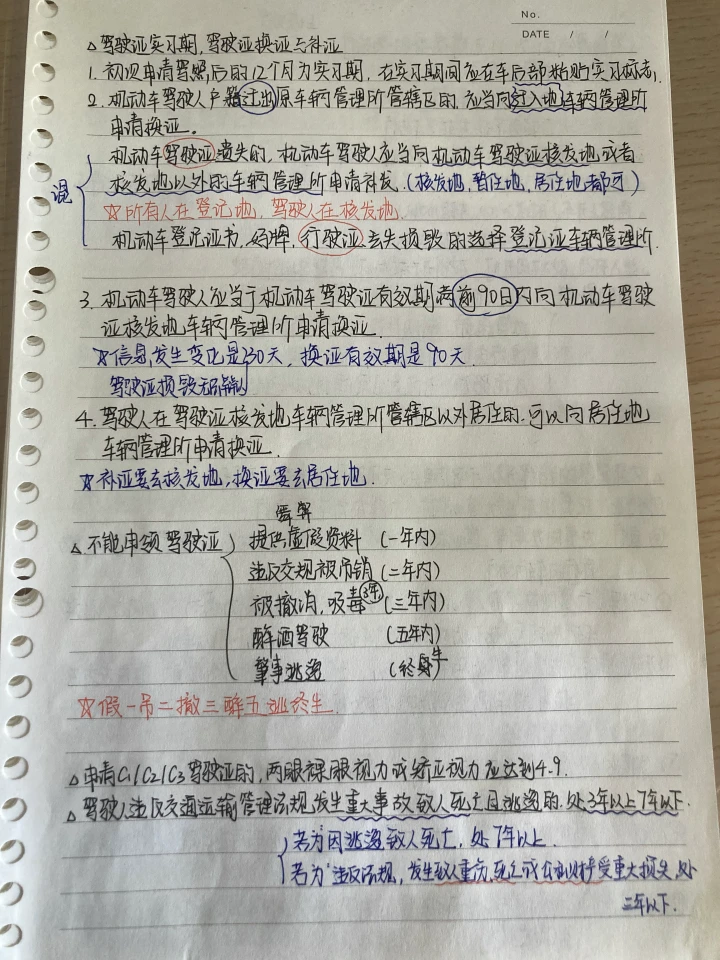 No.
DATE / /
△驾驶证实习期,驾驶证换证与补证
1. 初次申请驾照后的12个月为实习期,在实习期间应在车后部粘贴实习标志.
2. 机动车驾驶人户籍迁出原车辆管理所管辖区的,应当向迁入地车辆管理所
申请换证。
机动车驾驶证遗失的,机动车驾驶人应当向机动车驾驶证核发地或者
混
核发地以外的车辆管理所申请补发.(核发地,暂住地,居住地都可)
☆所有人在登记地,驾驶人在核发地.
机动车登记证书,号牌,行驶证丢失损毁的选择登记证车辆管理所.
3. 机动车驾驶人应当于机动车驾驶证有效期满前90日内向机动车驾驶
证核发地车辆管理所申请换证.
☆信息发生变化是30天,换证有效期是90天.
驾驶证损毁无法辨认
4. 驾驶人在驾驶证核发地车辆管理所管辖区以外居住的.可以向居住地
车辆管理所申请换证.
☆补证要去核发地,换证要去居住地.
△不能申领驾驶证
提供虚假资料 (一年内)
违反交规被吊销 (二年内)
被撤消,吸毒 3年 (三年内)
醉酒驾驶 (五年内)
肇事逃逸 (终生)
☆假一吊二撤三醉五逃终生.
△申请C1/C2/C3驾驶证的,两眼裸眼视力或矫正视力应达到4.9.
△驾驶人违反交通运输管理法规发生重大事故致人死亡且逃逸的.处3年以上7年以下.
若为因逃逸致人死亡,处7年以上.
若为违反法规,发生致人重伤,死亡或公私财产受重大损失,处
三年以下.